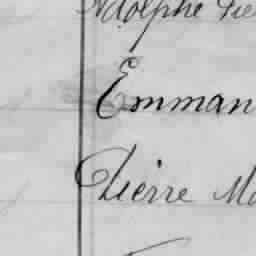 Adolphe Pie
Emman
Pierre Ma